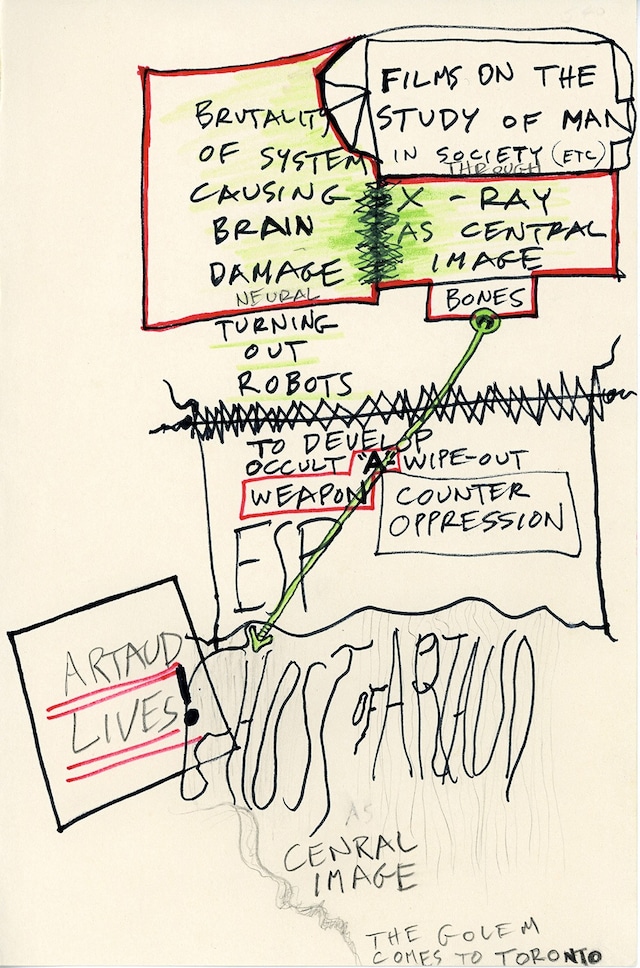 FILMS ON THE
STUDY OF MAN
IN SOCIETY (ETC)
THROUGH
X-RAY
AS CENTRAL
IMAGE
BONES
BRUTALITY
OF SYSTEM
CAUSING
BRAIN
DAMAGE
NEURAL
TURNING
OUT
ROBOTS
TO DEVELOP
OCCULT "A" WIPE-OUT
WEAPON
COUNTER
OPPRESSION
ESP
ARTAUD
LIVES!
GHOST OF ARTAUD
AS
CENRAL
IMAGE
THE GOLEM
COMES TO TORONTO